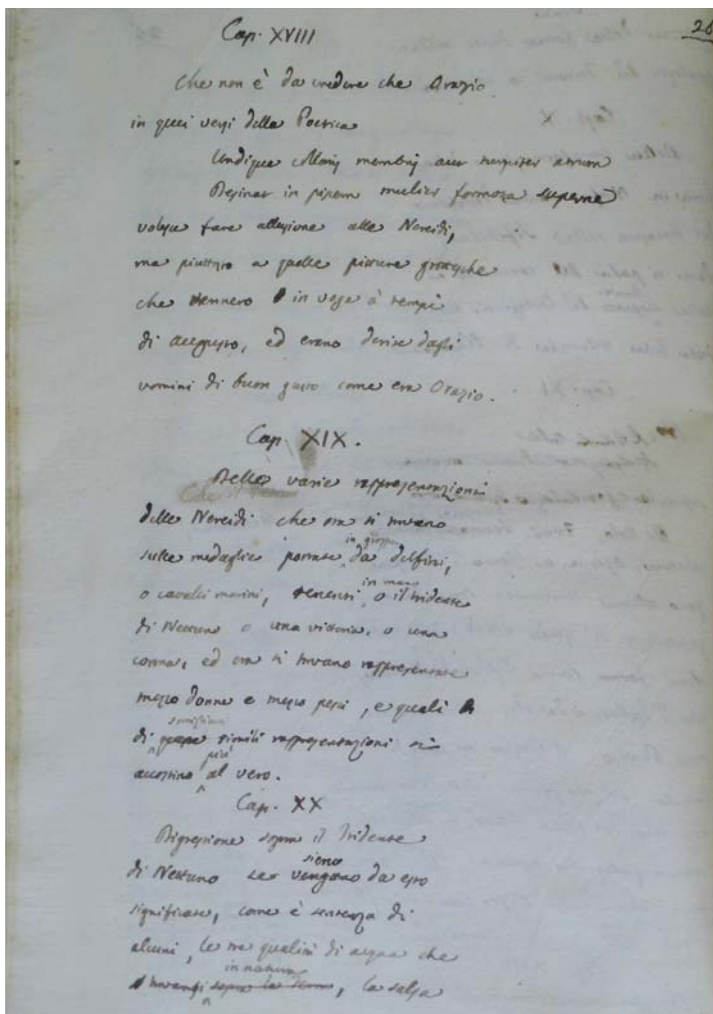 26
Cap. XVIII
Che non è da credere che Orazio
in quei versi della Poetica
Undique collatis membris aut turpiter atrum
Desinat in piscem mulier formosa superne
volesse fare allusione alle Nereidi,
ma piuttosto a quelle pitture grottesche
che vennero in voga a' tempi
di Augusto, ed erano derise dagli
uomini di buon gusto come era Orazio.
Cap. XIX.
Delle varie rappresentazioni
delle Nereidi che ora si trovano
in groppa
sulle medaglie portate da delfini,
in mano
o cavalli marini, tenenti, o il tridente
di Nettuno o una vittoria, o una
corona, ed ora si trovano rappresentate
mezzo donne e mezzo pesci, e quali
di simili rappresentazioni si
più
accostino al vero.
Cap. XX
Digressione sopra il Tridente
sieno
di Nettuno se vengano da esso
significate, come è sentenza di
alcuni, le tre qualità di acqua che
in natura
trovansi sopra la terra, la salsa